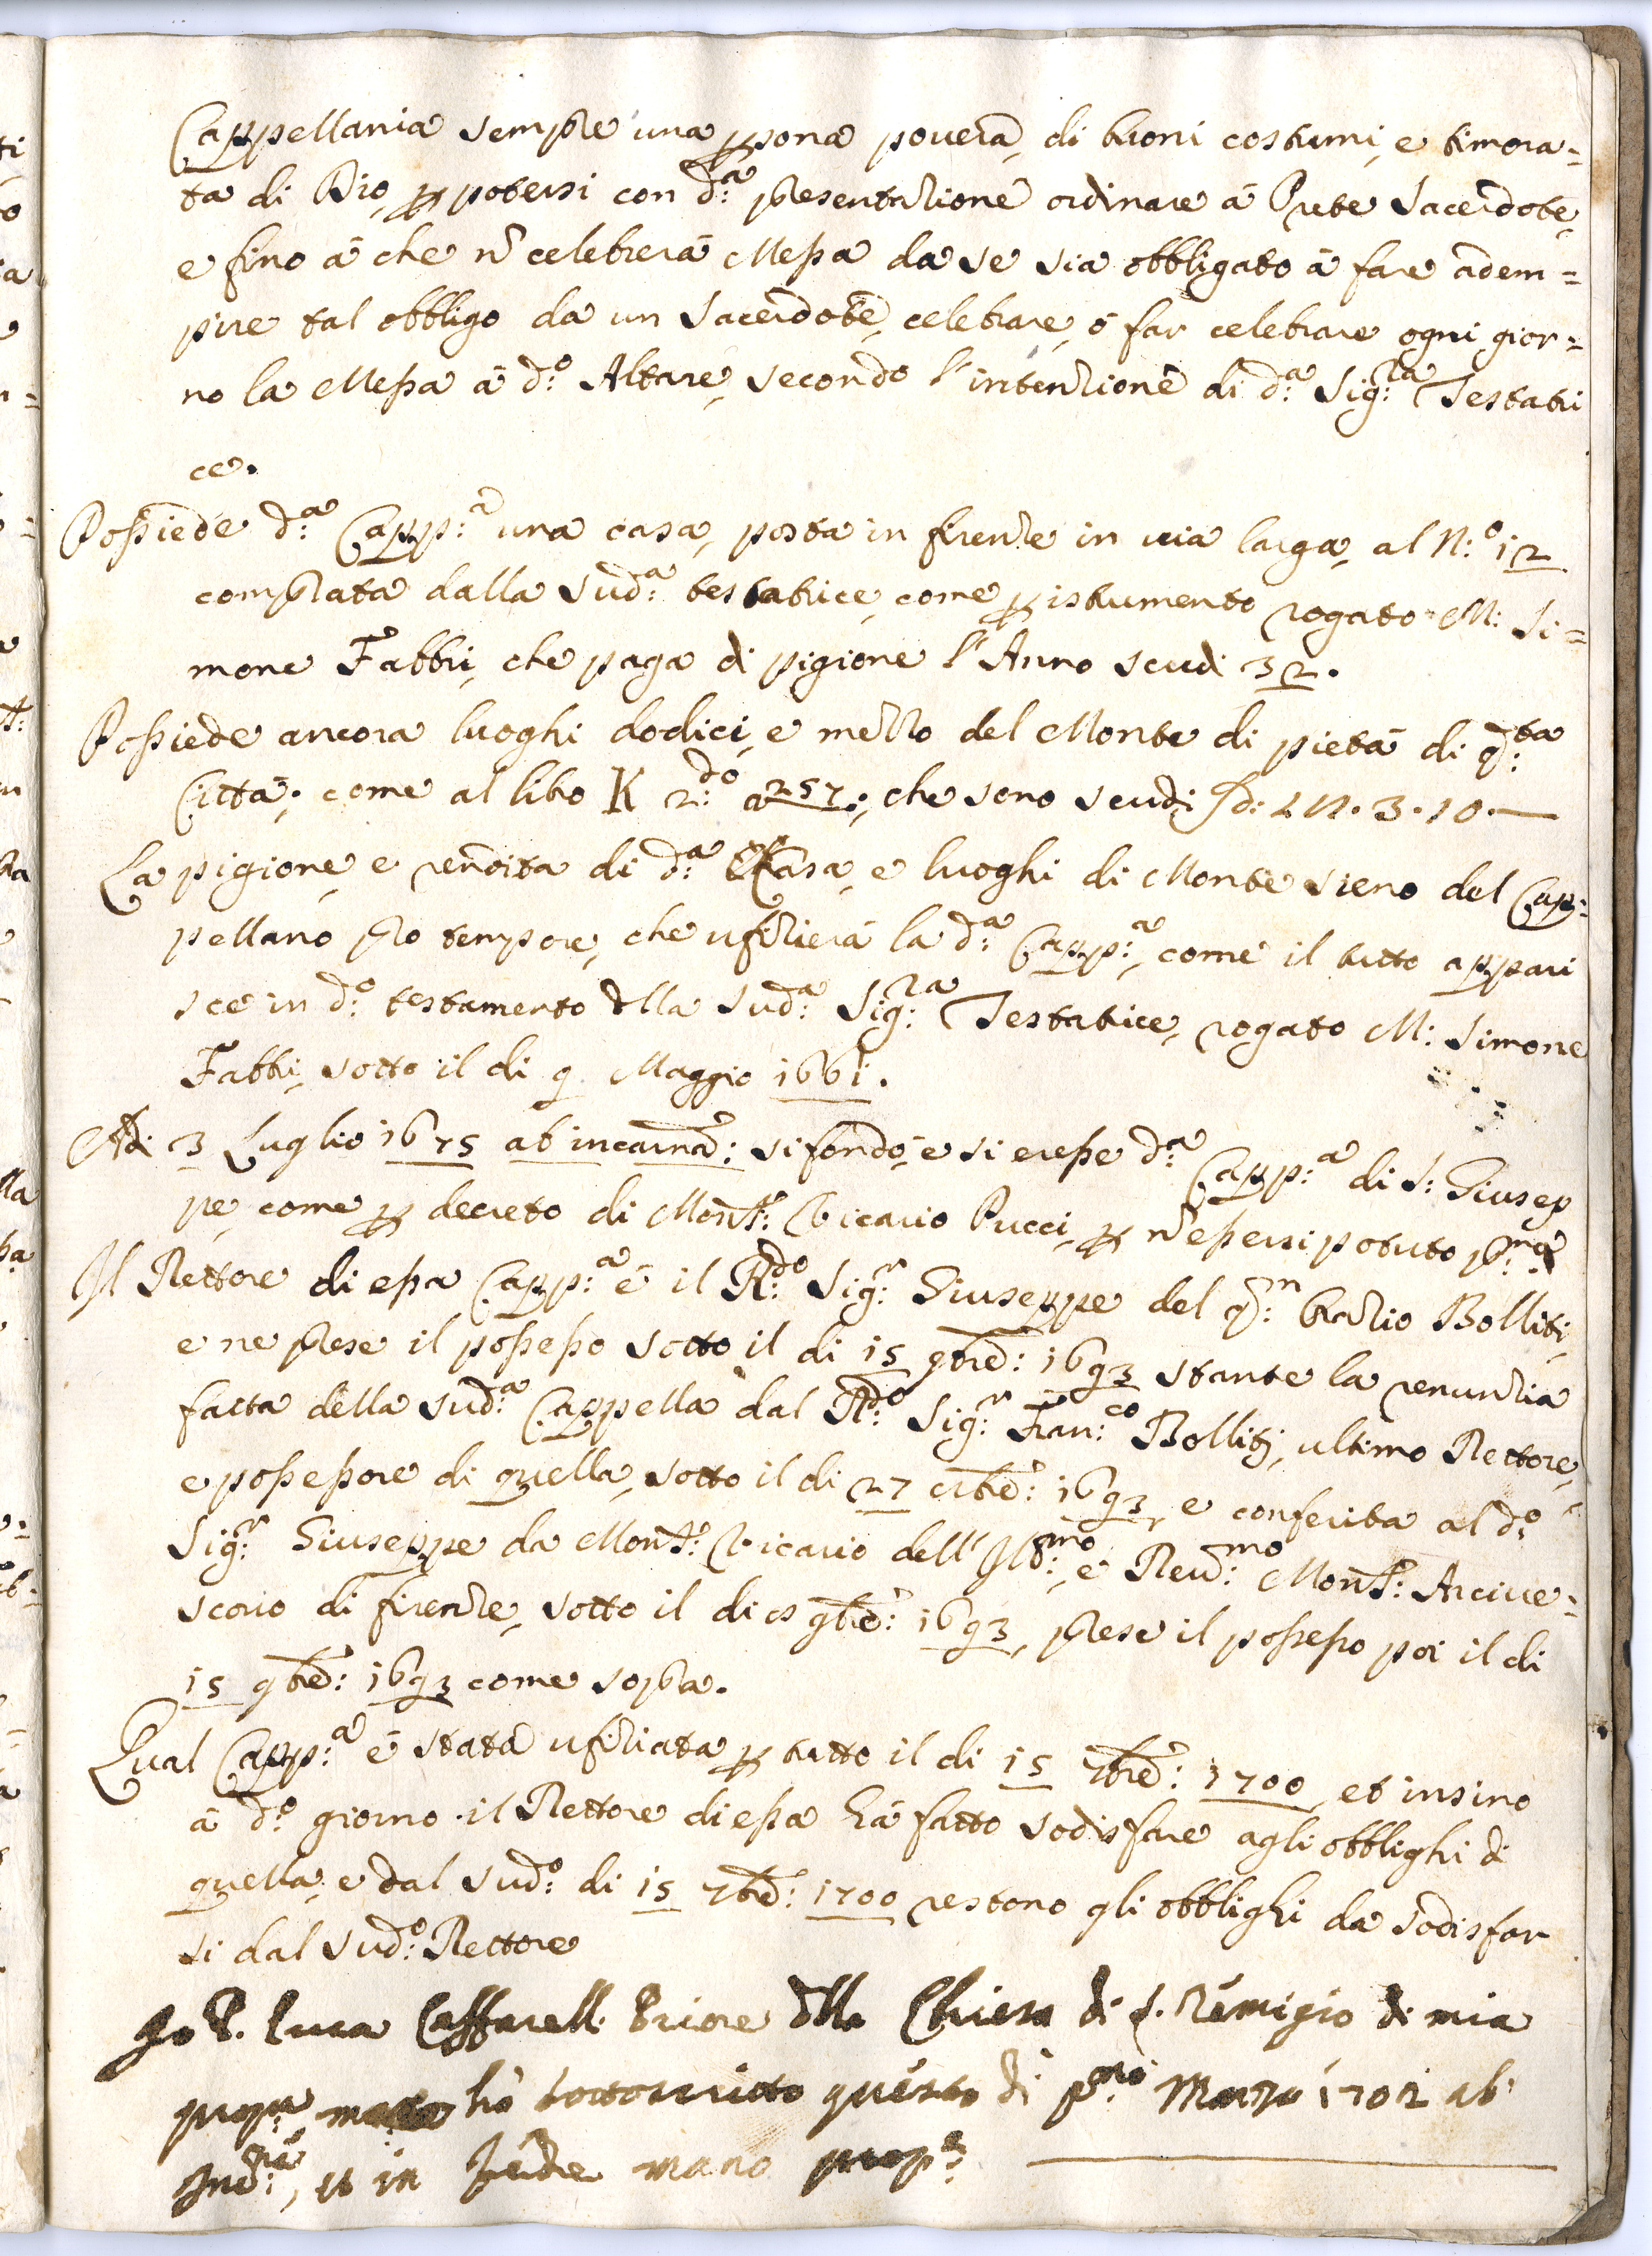 Cappellania sempre una psona povera, di buoni costumi, e timora=
ta di Dio, p potersi con d:ᵃ presentazione ordinare à Prete Sacerdote,
e fino à che ñ celebrerà Messa da se sia obbligato à fare adem=
pire tal obbligo da un Sacerdote, celebrare, ò far celebrare ogni gior=
no la Messa à d:ᵒ Altare, secondo l'intenzione di d:ᵃ Sig:ʳᵃ Testatri
ce.
Possiede d:ᵃ Capp:ᵃ una casa, posta in firenze in via larga, al N:ᵒ 12
comprata dalla Sud:ᵃ testatrice, come p istrumento rogato M: Si=
mone Fabbri, che paga di pigione l'Anno scudi 32.
Possiede ancora luoghi dodici, e mezzo del Monte di pietà di q:ᵗᵃ
Città; come al libro K 2:ᵈᵒ a 257; che sono scudi
La pigione, e rendita di d:ᵃ Casa, e luoghi di Monte sieno del Cap:
pellano pro tempore, che ufizierà la d:ᵃ Capp:ᵃ, come il tutto appari
sce in d:ᵒ testamento dlla Sud:ᵃ Sig:ʳᵃ Testatrice, rogato M: Simone
Fabbri, sotto il di 9 Maggio 1661.
Adi 3 Luglio 1675 ab incarnã: si fondò, e si eresse d:ᵃ Capp:ᵃ di S: Giusep
pe, come p decreto di Monsʳ: Vicario Pucci, p ñ essersi potuto p:ᵐᵃ
Il Rettore di essa Capp:ᵃ è il R:ᵈᵒ Sig:ʳ Giuseppe del q:ᵐ Bolliti,
e ne prese il possesso sotto il di 15 9brẽ: 1693 stante la renunzia
fatta della sud:ᵃ Cappella dal R:ᵈᵒ Sig:ʳ Fran:ᶜᵒ Bolliti, ultimo Rettore,
e possessore di quella, sotto il di 27 8brẽ: 1693, e conferita al d:ᵒ
Sig:ʳ Giuseppe da Monsʳ: Vicario dell' Ill:ᵐᵒ, e Reu:ᵐᵒ Monsʳ: Arcive=
scovo di firenze, sotto il di 9brẽ: 1693, prese il possesso poi il di
15 9brẽ: 1693 come sopra.
Qual Capp:ᵃ è stata ufiziata p tutto il di 15 7brẽ: 1700, et insino
à d:ᵒ giorno il Rettore di essa hà fatto sodisfare agli obblighi di
quella, e dal sud:ᵒ di 15 7brẽ: 1700 restono gli obblighi da sodisfar
si dal sud:ᵒ Rettore
Io P. Luca Caffarelli Priore dlla Chiesa di S. Remigio di mia
propᵃ mano hò sottoscritto questo di p:ᵐᵒ Marzo 1701 ab
Inc:ⁿᵉ, in fede mano propᵃ